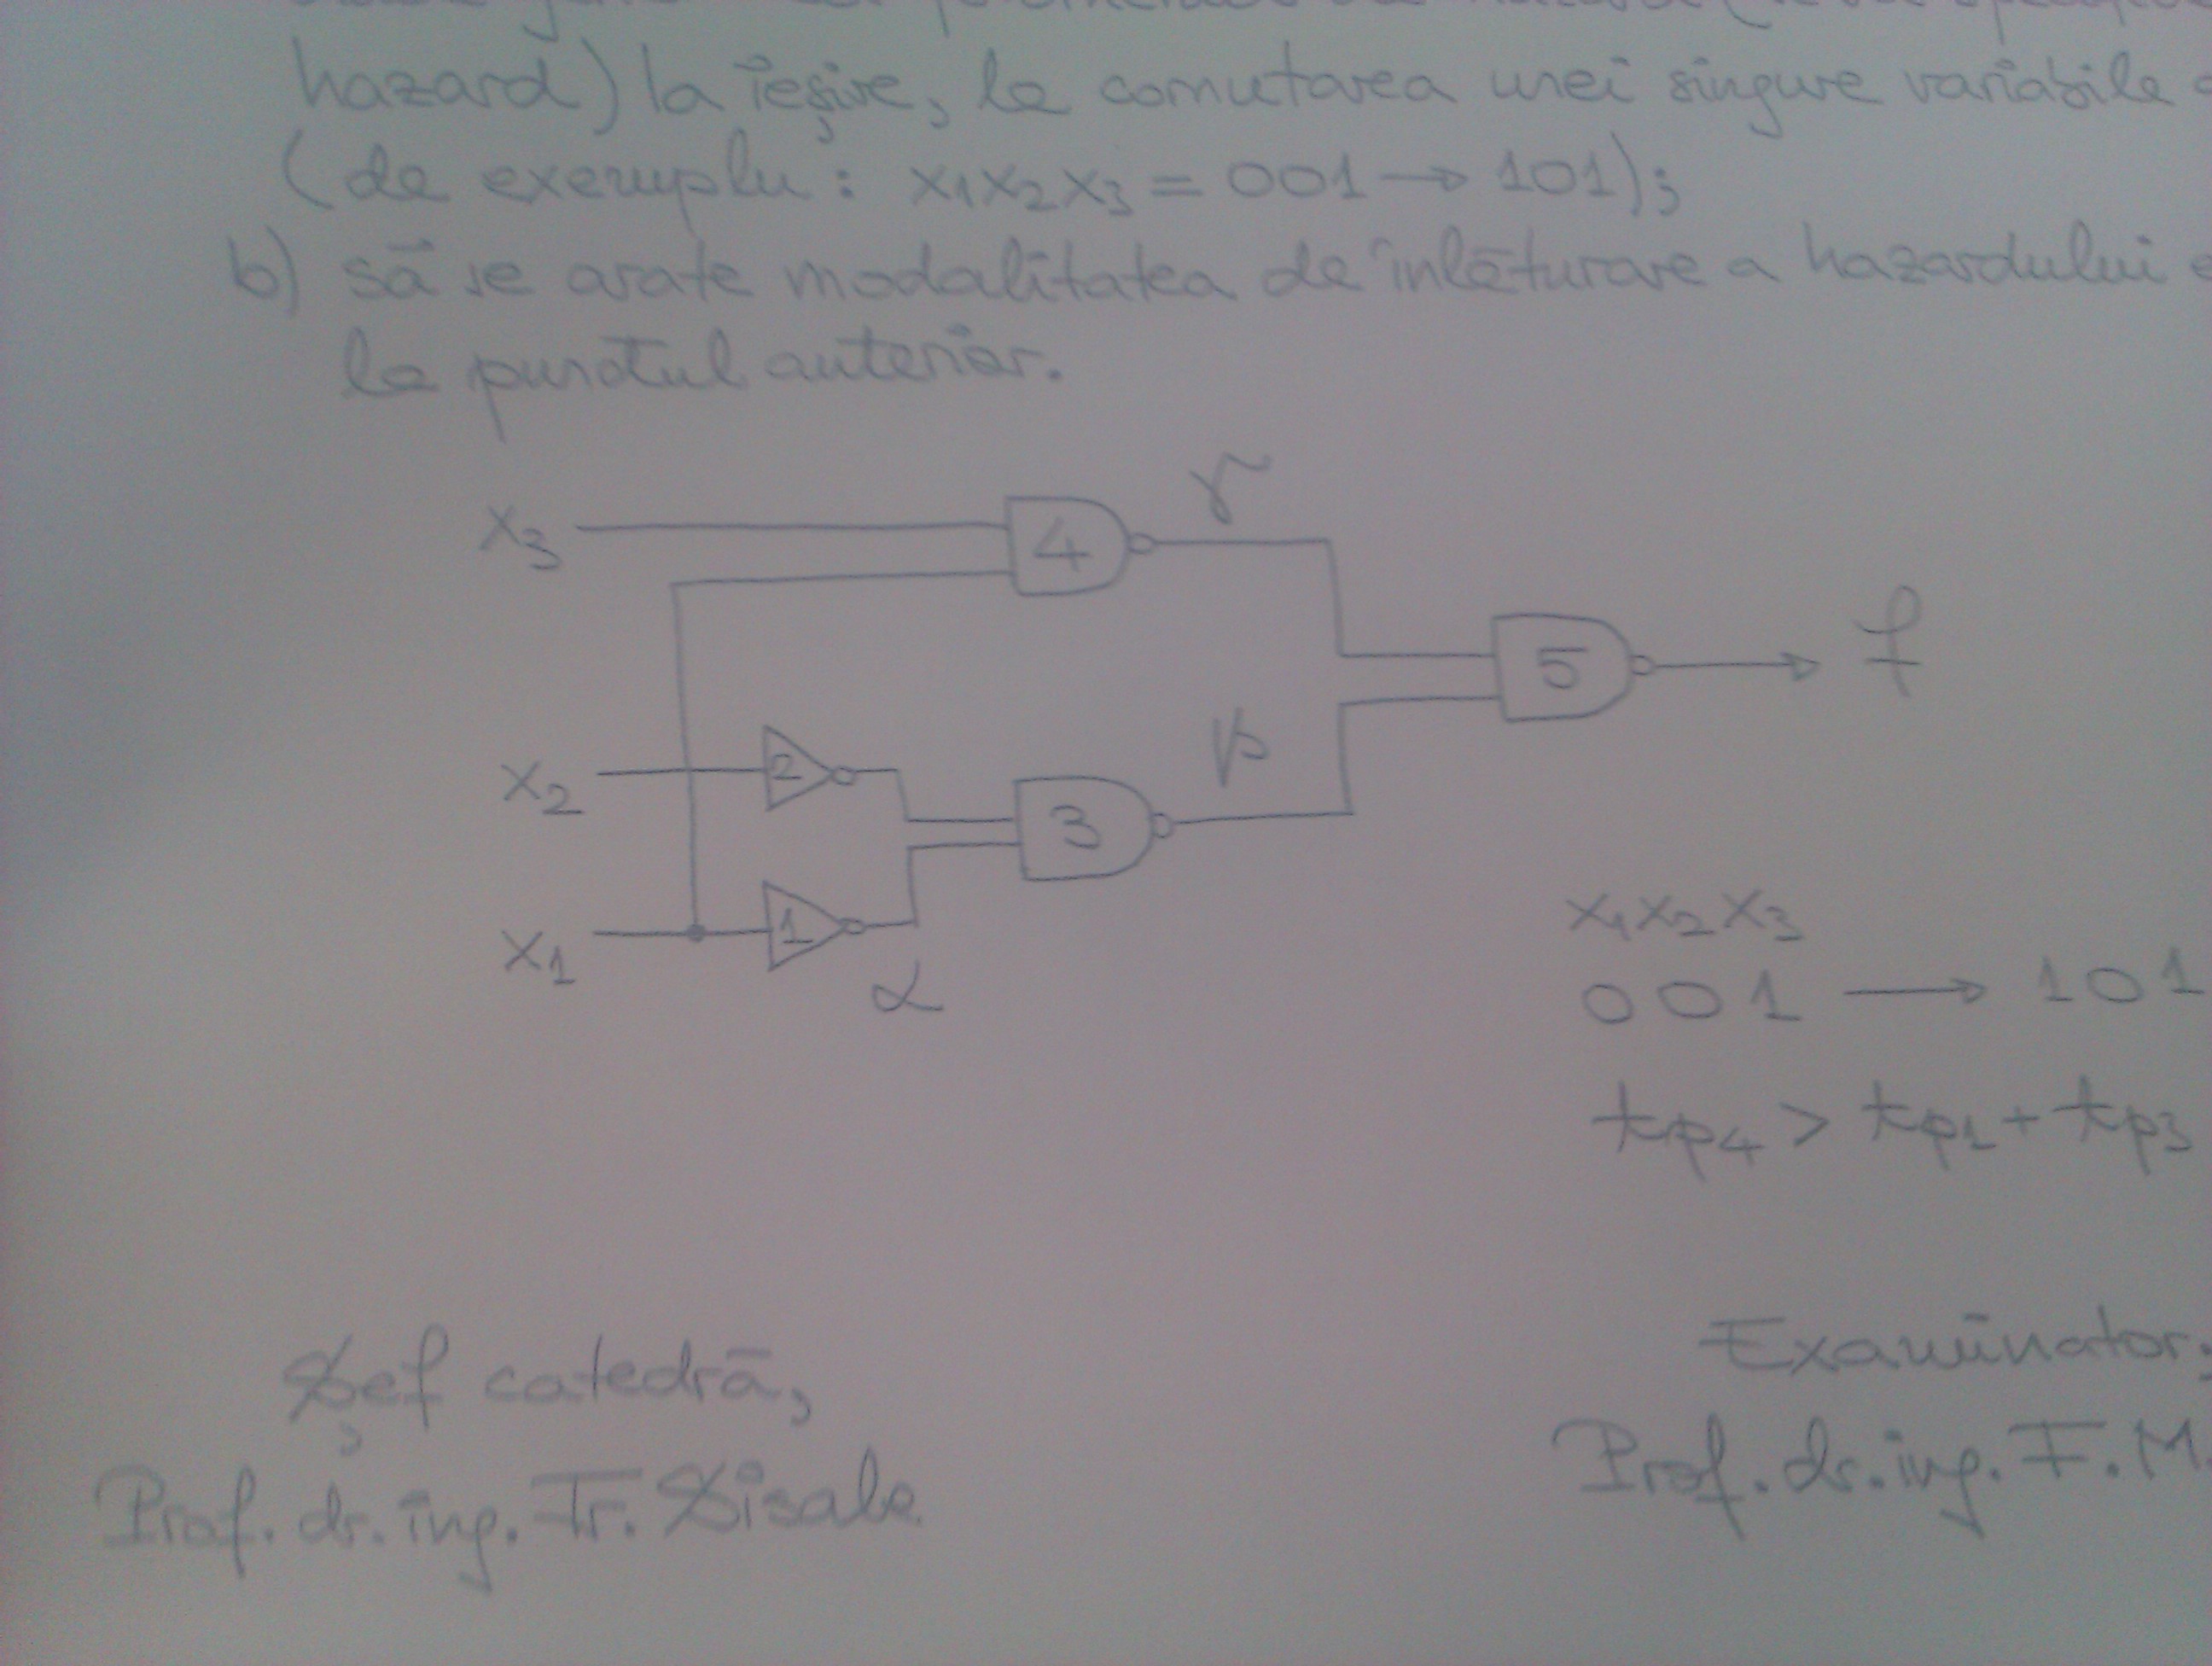 hazard) la ieșire, la comutarea unei singure variabile
(de exemplu: x₁x₂x₃ = 001 → 101);
b) să se arate modalitatea de înlăturare a hazardului
la punctul anterior.
γ
x₃
4
f
5
β
x₂
2
3
x₁
1
α
x₁x₂x₃
001 → 101
tp₄ > tp₁ + tp₃
Șef catedră,
Examinator,
Prof. dr. ing. Tr.
Prof. dr. ing. F. M.